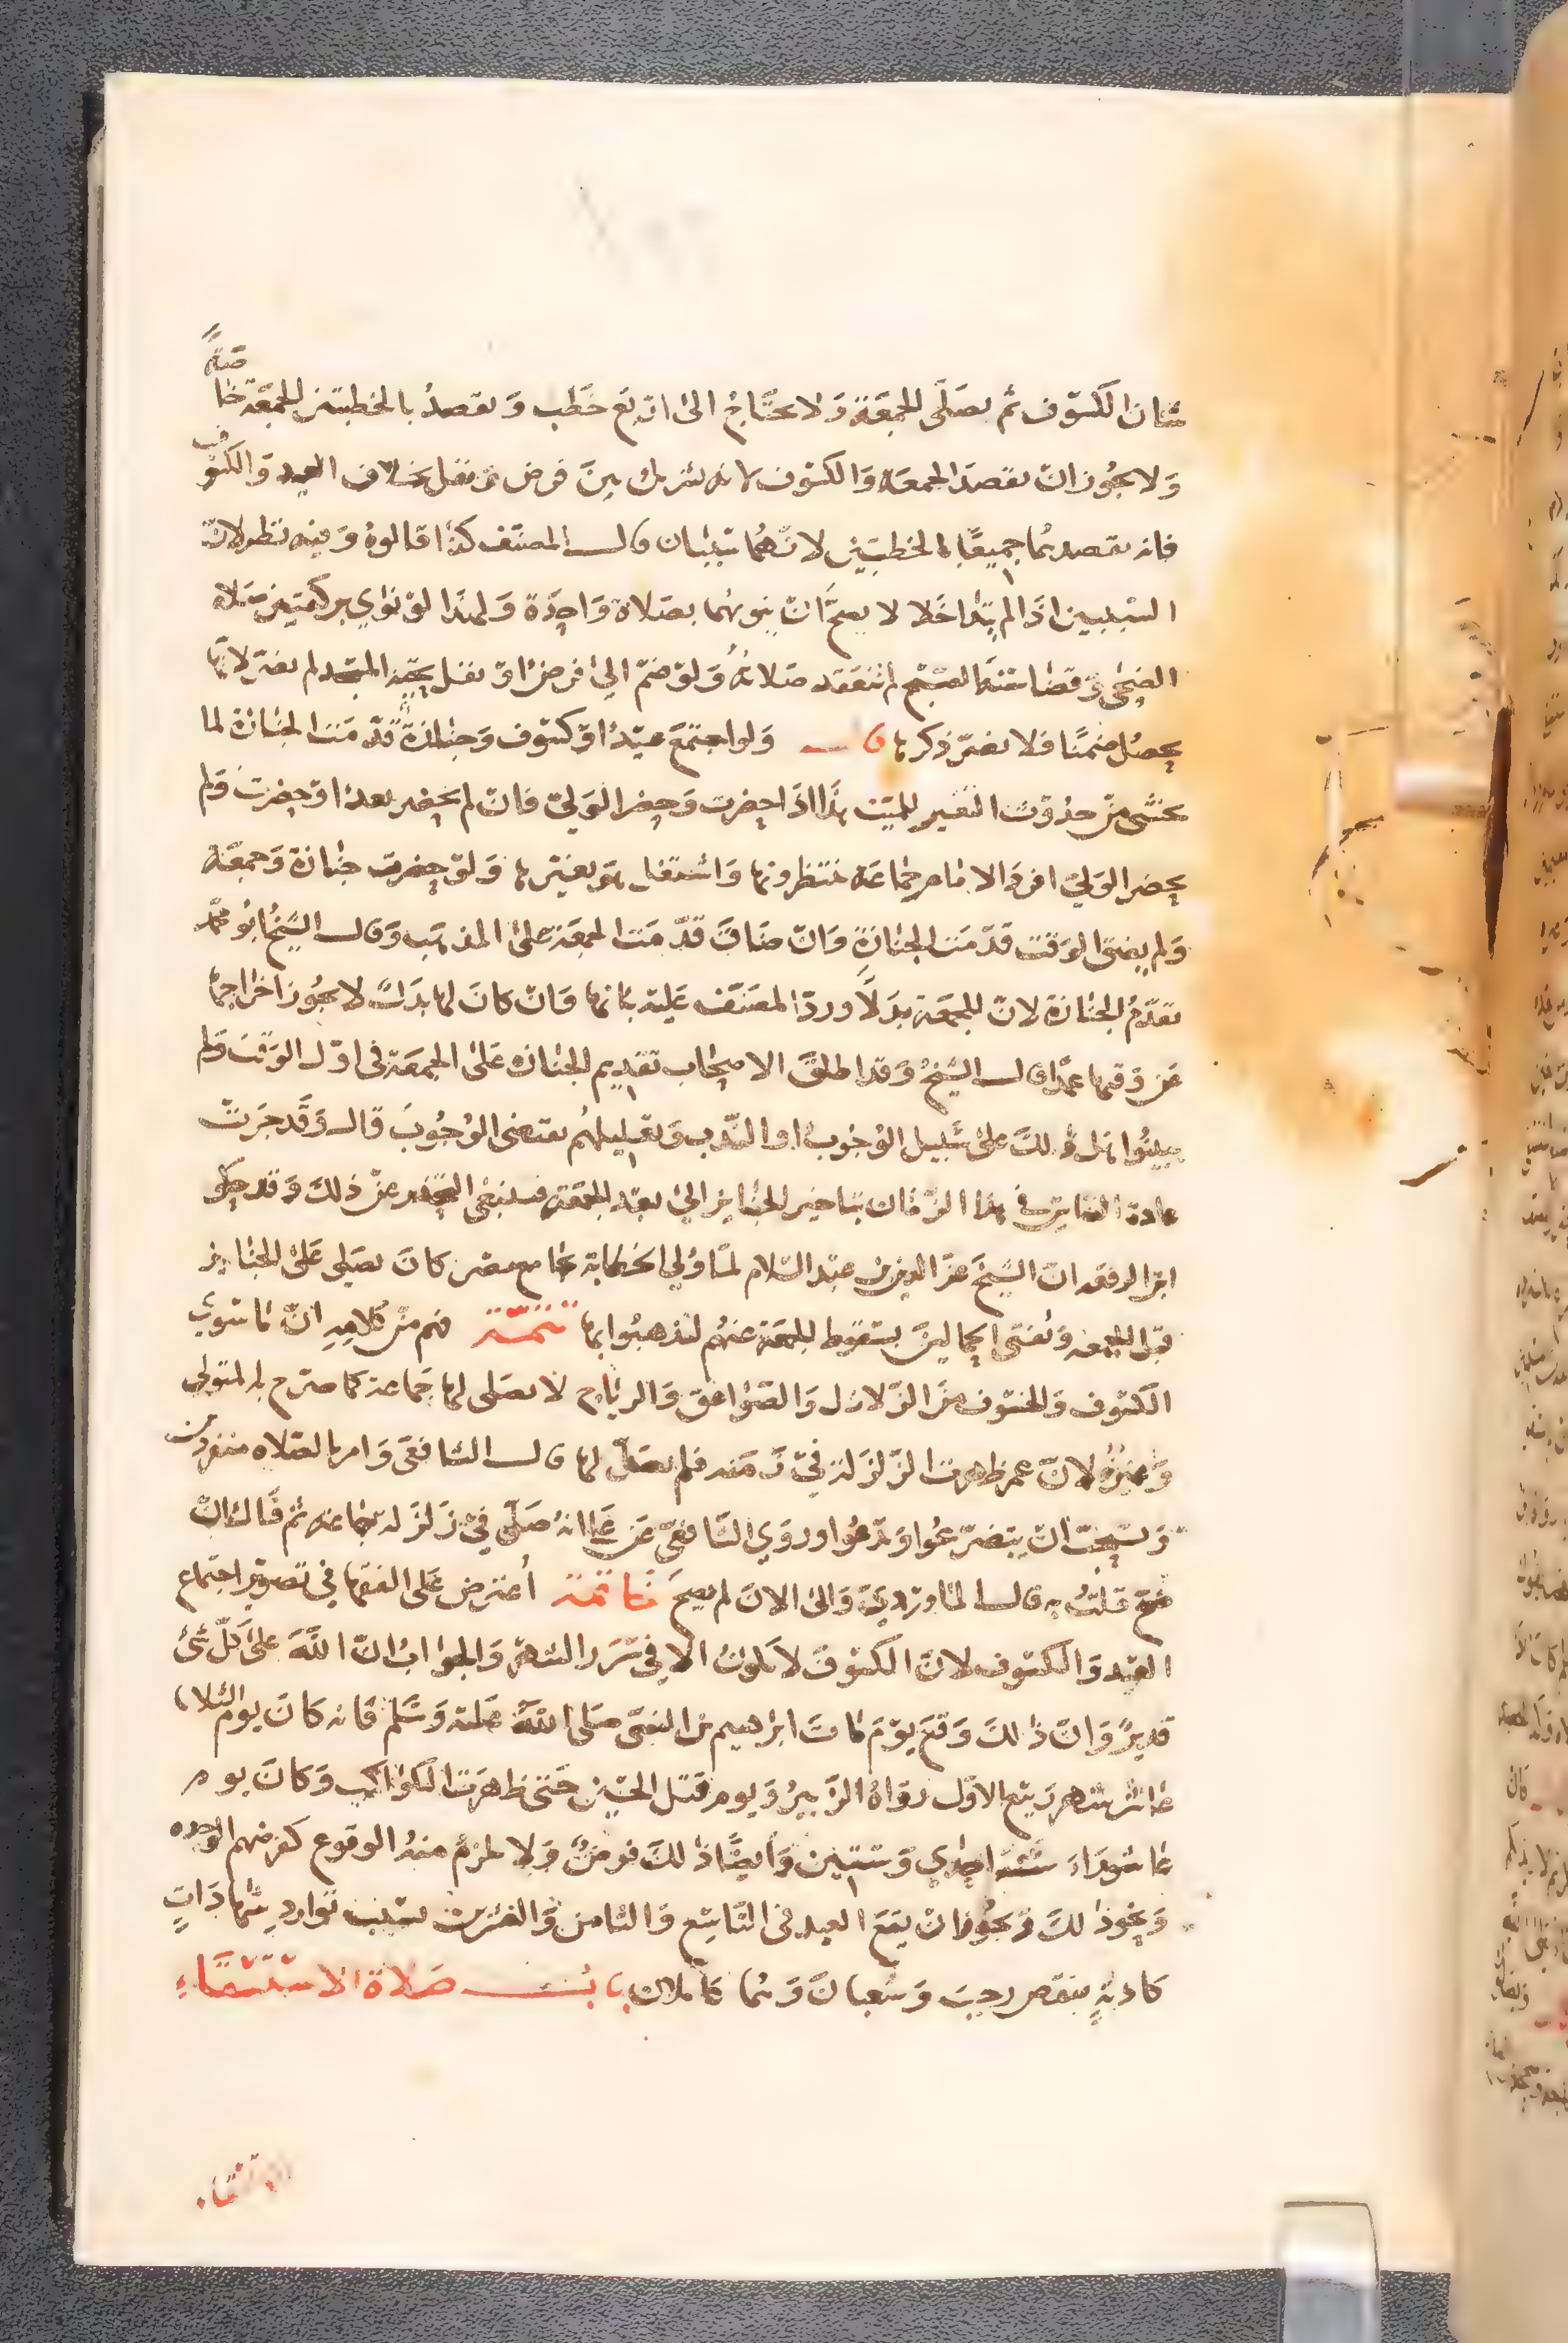 شان الكسوف ثم يصلى للجمعة ولا يحتاج الى اربع خطب ويقصد بالخطبتين للجمعة خاصة
ولا يجوز ان يقصد الجمعه والكسوف لانه تشريك بين فرض ونفل بخلاف العيد والكسوف
فانه يقصدهما جميعا بالخطبتين لانهما سنتان قال المصنف كذا قالوه وفيه نظر لان
السنتين اذا لم يتداخلا لا يصح ان ينويهما بصلاة واحدة ولهذا لو نوى بركعتين صلاه
الضحى وقضا سنة الصبح لم تنعقد صلاته ولو ضم الى فرض او نفل تحية المسجد لم يضر لانها
يحصل ضمنا فلا يضر ذكرها قال ولو اجتمع عيد او كسوف وجنازة قدمت الجنازة لما
يخشى من حدوث التغير للميت هذا اذا حضرت وحضر الولي فان لم يحضر بعد او حضرت ولم
يحضر الولي افرد الامام جماعه ينتظرونها واشتغل هو بغيرها ولو حضرت جنازة وجمعة
ولم يضق الوقت قدمت الجنازة وان ضاق قدمت الجمعة على المذهب وقال الشيخ ابو محمد
تقدم الجنازة لان للجمعة بدلا ورده المصنف عليه بانها وان كان لها بدل لا يجوز اخراجها
عن وقتها عمدا قال الشيخ وقد اطلق الاصحاب تقديم الجنازه على الجمعة في اول الوقت ولم
يبينوا هل ذلك على سبيل الوجوب او الندب وتعليلهم يقتضى الوجوب قال وقد جرت
عادة الناس في هذا الزمان بتاخير الجنايز الى بعد الجمعة فينبغى التحذير عن ذلك وقد حكى
ابن الرفعه ان الشيخ عز الدين بن عبد السلام لما ولي الخطابة بجامع مصر كان يصلى على الجنايز
قبل الجمعه ويفتى الحمالين بسقوط الجمعة عنهم ليذهبوا بها تتمة فهم من كلامه ان ما سوى
الكسوف والخسوف من الزلازل والصواعق والرياح لا يصلى لها جماعة كما صرح به المتولي
وغيره لان عمر ظهرت الزلزلة في زمنه فلم يصل لها قال الشافعي وامر بالصلاه منفردين
ويستحب ان يتضرعوا ويدعوا وروي الشافعي عن علي انه صلى في زلزلة جماعه ثم قال ان
صح قلت به قال الماوردي والى الان لم يصح خاتمة أعترض على الفقها في تصوير اجتماع
العيد والكسوف لان الكسوف لا يكون الا في سرر الشهر والجواب ان الله على كل شئ
قدير وان ذلك وقع يوم مات ابراهيم بن النبي صلى الله عليه وسلم فانه كان يوم الثلاثا
عاشر شهر ربيع الاول رواه الزبير ويوم قتل الحسين حتى ظهرت الكواكب وكان يوم
عاشوراء سنة احدي وستين وايضا ذلك فرض ولا يلزم منه الوقوع كفرضهم
ونحو ذلك ويجوز ان يقع العيد في التاسع والثامن والعشرين بسبب توارد شهادات
كاذبة بنقص رجب وشعبان وهما كاملان باب صلاة الاستسقاء